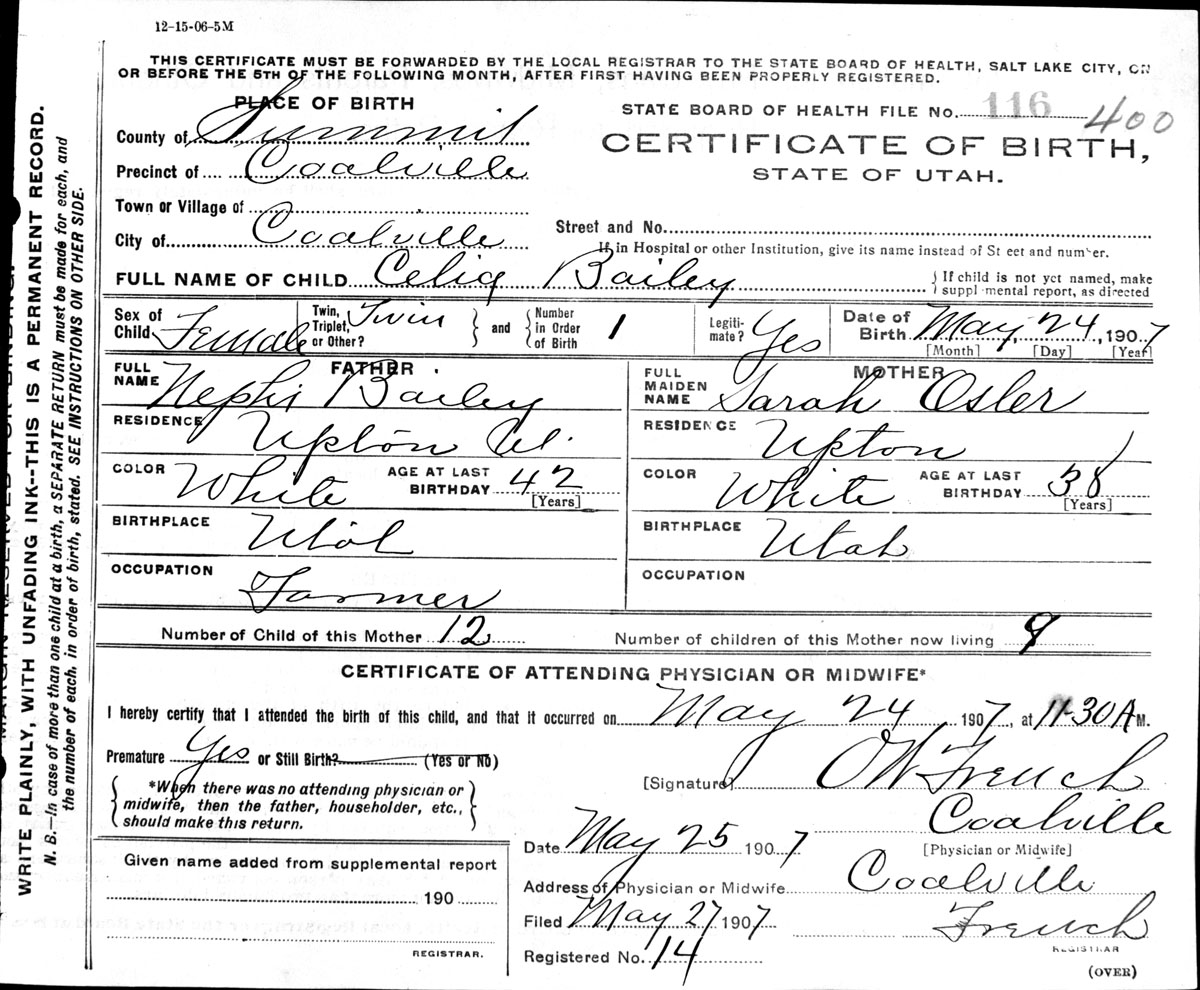 12-15-06-5M
THIS CERTIFICATE MUST BE FORWARDED BY THE LOCAL REGISTRAR TO THE STATE BOARD OF HEALTH, SALT LAKE CITY, ON
OR BEFORE THE 5TH OF THE FOLLOWING MONTH, AFTER FIRST HAVING BEEN PROPERLY REGISTERED.
PLACE OF BIRTH
STATE BOARD OF HEALTH FILE No. 116 400
County of Summit
CERTIFICATE OF BIRTH,
STATE OF UTAH.
Precinct of Coalville
Town or Village of
Street and No.
City of Coalville
If in Hospital or other Institution, give its name instead of St eet and number.
FULL NAME OF CHILD Celia Bailey
{ If child is not yet named, make
suppl mental report, as directed
Sex of Child Female
Twin, Triplet, or Other? Twin } and { Number in Order of Birth 1
Legiti-mate? Yes
Date of Birth May, 24, 1907
[Month] [Day] [Year]
FATHER
FULL NAME Nephi Bailey
RESIDENCE Upton Ut.
COLOR White AGE AT LAST BIRTHDAY 42
[Years]
BIRTHPLACE Utah
OCCUPATION Farmer
MOTHER
FULL MAIDEN NAME Sarah Osler
RESIDENCE Upton
COLOR White AGE AT LAST BIRTHDAY 38
[Years]
BIRTHPLACE Utah
OCCUPATION
Number of Child of this Mother 12
Number of children of this Mother now living 9
CERTIFICATE OF ATTENDING PHYSICIAN OR MIDWIFE*
I hereby certify that I attended the birth of this child, and that it occurred on May 24, 1907, at 11-30 A M.
Premature Yes or Still Birth? (Yes or No)
[Signature] OW French
Coalville
[Physician or Midwife]
{ *When there was no attending physician or
midwife, then the father, householder, etc.,
should make this return. }
Date May 25 1907
Address of Physician or Midwife Coalville
Filed May 27 1907 French
REGISTRAR
Registered No. 14
(OVER)
Given name added from supplemental report
190
REGISTRAR.
MARGIN RESERVED FOR BINDING.
WRITE PLAINLY, WITH UNFADING INK--THIS IS A PERMANENT RECORD.
N. B.—In case of more than one child at a birth, a SEPARATE RETURN must be made for each, and
the number of each. in order of birth, stated. SEE INSTRUCTIONS ON OTHER SIDE.